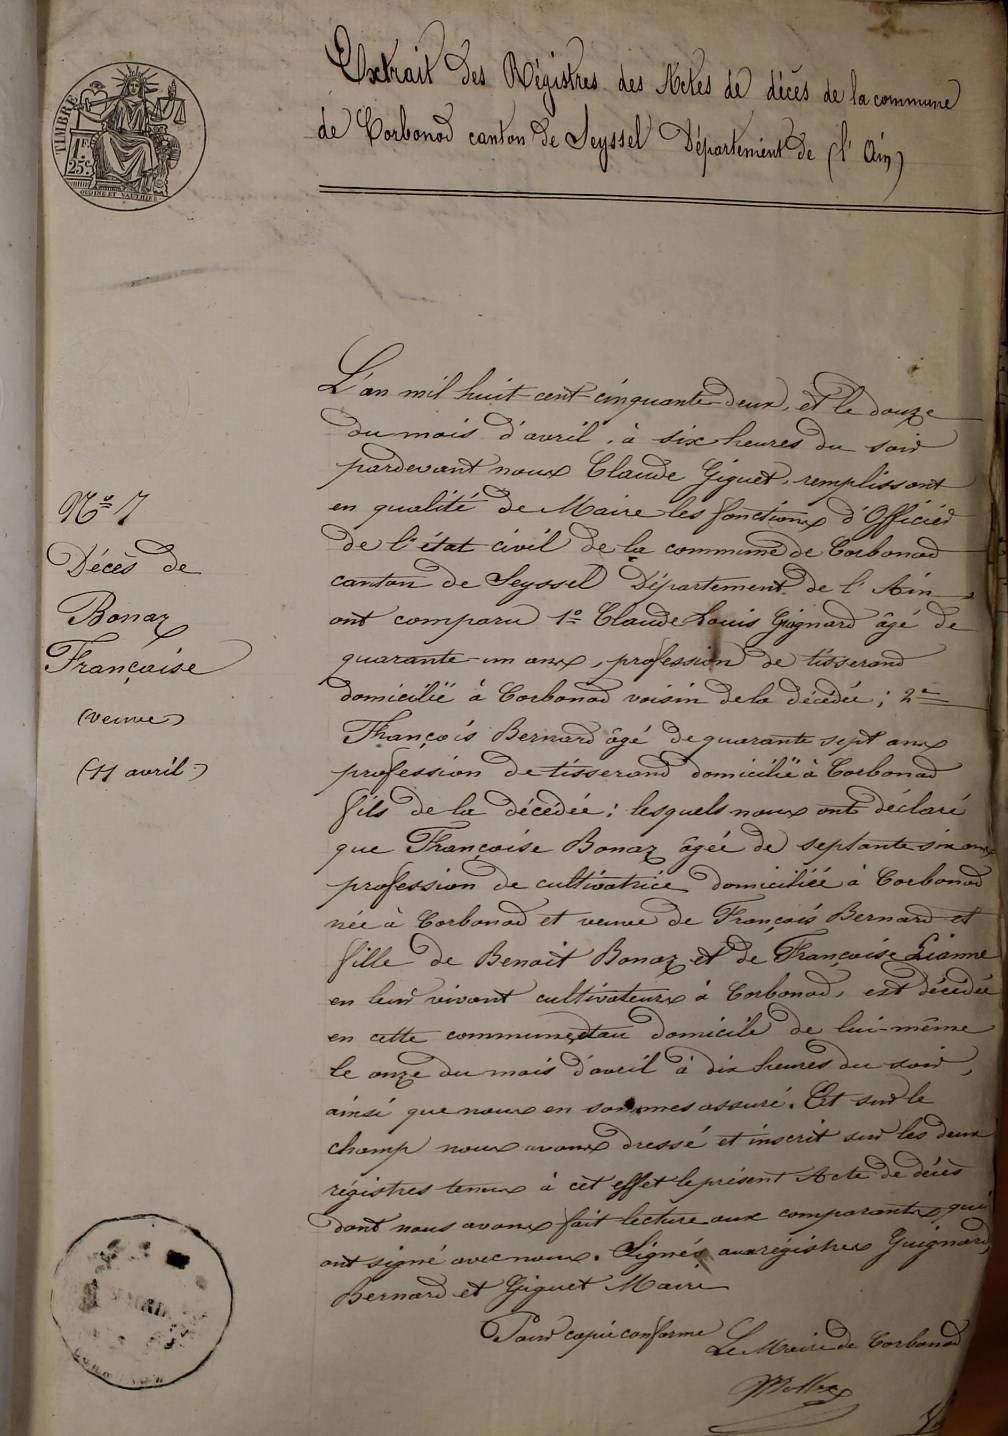 Extrait des Régistres des Actes de décès de la commune
de Corbonod canton de Seyssel Département de (l'Ain)
TIMBRE
1F.
25c.
OUDINÉ ET VAUTHIER
L'an mil huit-cent-cinquante-deux, et le douze
du mois d'avril, à six heures du soir
pardevant nous Claude Giguet, remplissant
en qualité de Maire les fonctions d'Officier
de l'état civil de la commune de Corbonod
canton de Seyssel Département de l'Ain
ont comparu 1º Claude Louis Guignard âgé de
quarante-un ans, profession de tisserand
domicilié à Corbonod voisin de la décédée; 2e
François Bernard âgé de quarante sept ans
profession de tisserand domicilié à Corbonod
fils de la décédée; lesquels nous ont déclaré
que Françoise Bonaz âgée de septante six ans
profession de cultivatrice domiciliée à Corbonod
née à Corbonod et veuve de François Bernard et
fille de Benoit Bonaz et de Françoise Lianne
en leur vivant cultivateurs à Corbonod, est décédée
en cette commune, et au domicile de lui-même
le onze du mois d'avril à dix heures du soir,
ainsi que nous en sommes assuré. Et sur le
champ nous avons dressé et inscrit sur les deux
régistres tenus à cet effet le présent Acte de décès
dont nous avons fait lecture aux comparants qui
ont signé avec nous. Signés aux régistres Guignard,
Bernard et Giguet Maire
Pour copie conforme
Le Maire de Corbonod
Nº 7
Décès de
Bonaz
Françoise
(veuve)
(11 avril)